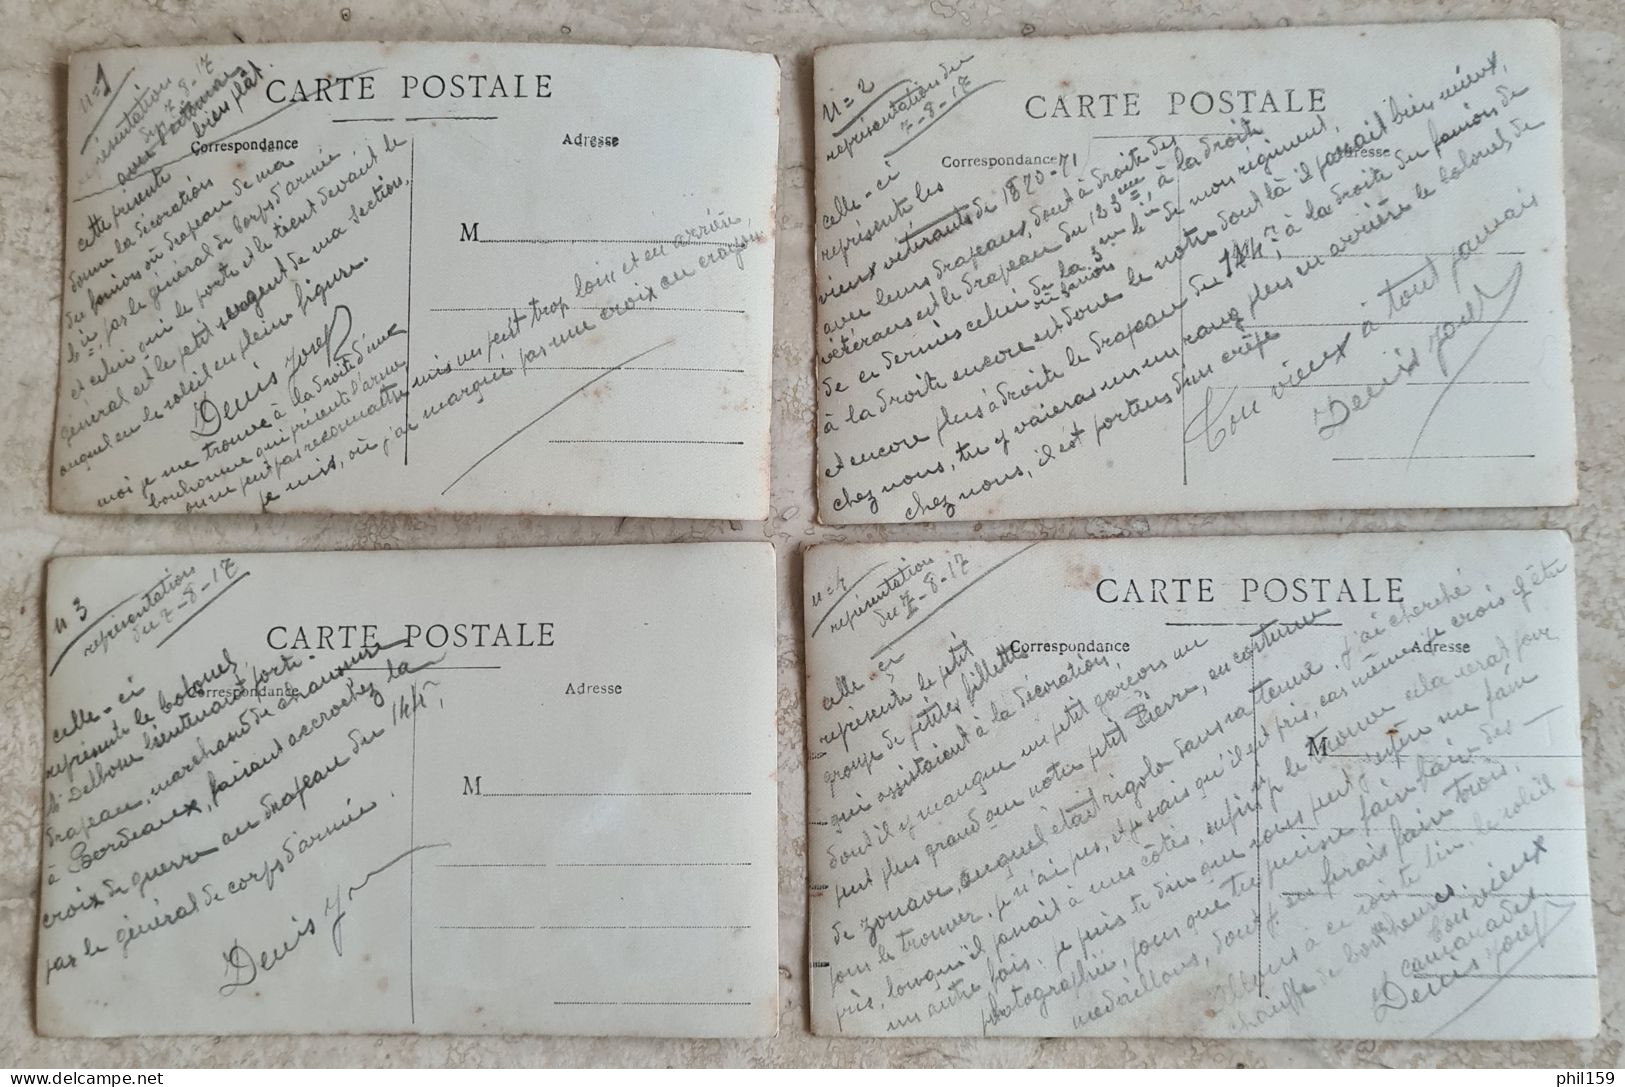 n=1
représentation
du 7-8-17
bien plat.
CARTE POSTALE
Correspondance
Adresse
M
cette présente
donne la décoration
du fanion ou drapeau de ma
par le général de corps d'armée
et celui qui le porte et le tient devant le
général est le petit sergent de ma section,
auquel on le voit en pleine figure.
Denis Josef
moi je me trouve à la droite d'un
bonhomme qui présent l'arme
on ne peut pas reconnaître, mis un peut trop loin et en arrière,
je mis, où j'ai marqué pas une croix au crayon
n=2
représentation du
7-8-17
CARTE POSTALE
Correspondance
Adresse
celle-ci
représente les
vieux vétérans de 1870-71
avec leurs drapeaux, dont à droite des
vétérans est le drapeau du 123me, à la droite
de ce dernier celui de la 3me Cie de mon régiment,
ou fanion
à la droite encore est donc le notre dont là il parrait bien mieux,
et encore plus à droite le drapeau du 144e, à la droite du fanion de
chez nous, tu y vaieras en un rang plus en arrière le colonel de
chez nous, il est porteur d'un crêpe
Ton vieux à tout jamais
Denis Josef
n 3
représentation
du 7-8-17
CARTE POSTALE
Correspondance
Adresse
M
celle-ci
représente le Colonel
Delbour lieutenant porte-
drapeau, marchand de chaussure
à Bordeaux, faisant accrochez la
croix de guerre au drapeau du 144e,
par le général de corps d'armée.
Denis J
n=4
représentation
du 7-8-17
CARTE POSTALE
Correspondance
Adresse
M
celle-ci
représente le petit
groupe de petites fillettes
qui assistaient à la décoration,
dont il y manque un petit garçon un
peut plus grand que notre petit Pierre, en costume
de zouave, auquel était rigolo dans sa tenue. J'ai cherché
pour le trouver, je n'ai pas, et je sais qu'il est pris, car même je crois q'étu
près, lorsqu'il passait à mes côtés, enfin si je le trouve cela serat pour
un autre fois. je puis te dire que si vous peut j'enfin me fair
photographié, pour que tu puisse fair fair des
medaillons, dont j'en ferais fair trois.
Allons à ce soir le soleil
chauffe de bonheures.
Ton vieux
camarades.
Denis Josef
phil159